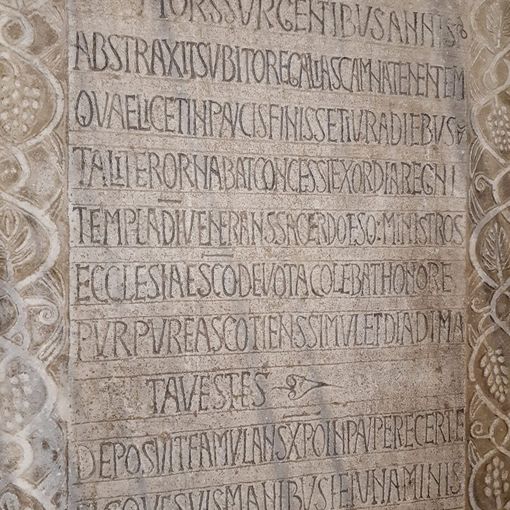 MORS SVRGENTIBVS ANNIS
ABSTRAXIT SVBITO REGALIA SCAMNA TENENTEM
QVAE LICET IN PAVCIS FINISSET IVRA DIEBVS
TALITER ORNABAT CONCESSI EXORDIA REGNI
TEMPLA DI VENERANS SACERDOTES Q: MINISTROS
ECCLESIAE SCO DEVOTA COLEBAT HONORE
PVRPVREAS COTIENS SIMVL ET DIADIMA
TA VESTES
DEPOSVIT FAMVLANS XPO IN PAVPERE CERTE
SVIS MANIBVS IEIVNA MINIS